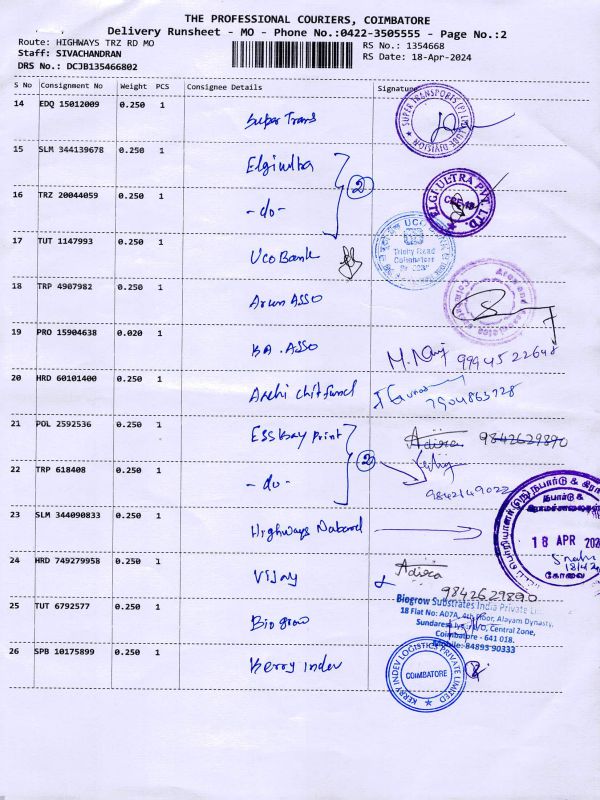 THE PROFESSIONAL COURIERS, COIMBATORE
Delivery Runsheet - MO - Phone No.:0422-3505555 - Page No.:2
Route: HIGHWAYS TRZ RD MO
RS No.: 1354668
Staff: SIVACHANDRAN
RS Date: 18-Apr-2024
DRS No.: DCJB135466802
S No Consignment No Weight PCS Consignee Details Signature
14 EDQ 15012009 0.250 1 Super Trans
SUPER TRANSPORTS (P) LTD
DIVISION
15 SLM 344139678 0.250 1 Elgi ultra
16 TRZ 20044059 0.250 1 -do- 2
ELGI ULTRA PVT. LTD.
CBE-18
17 TUT 1147993 0.250 1 Uco Bank
UCO
Trichy Road
Coimbatore
18 TRP 4907982 0.250 1 Arun ASSO
Arun and Associates
Coimbatore
19 PRO 15904638 0.020 1 KA. ASSO
99945 22648
20 HRD 60101400 0.250 1 Arshi chitfund
7904863728
21 POL 2592536 0.250 1 ESSKay print
9842629890
22 TRP 618408 0.250 1 -do- 2
9842149022
23 SLM 344090833 0.250 1 Highways Nabard
நபார்டு &
18 APR 202
கோவை
24 HRD 749279958 0.250 1 Vijay
9842629890
25 TUT 6792577 0.250 1 Biogrow
Biogrow Substrates India Private
18 Flat No: A07A, 4th Floor, Alayam Dynasty,
Central Zone,
Coimbatore - 641 018.
Mobile: 84893 90333
26 SPB 10175899 0.250 1 Kerry indev
KERRY INDEV LOGISTICS PRIVATE LIMITED
COIMBATORE